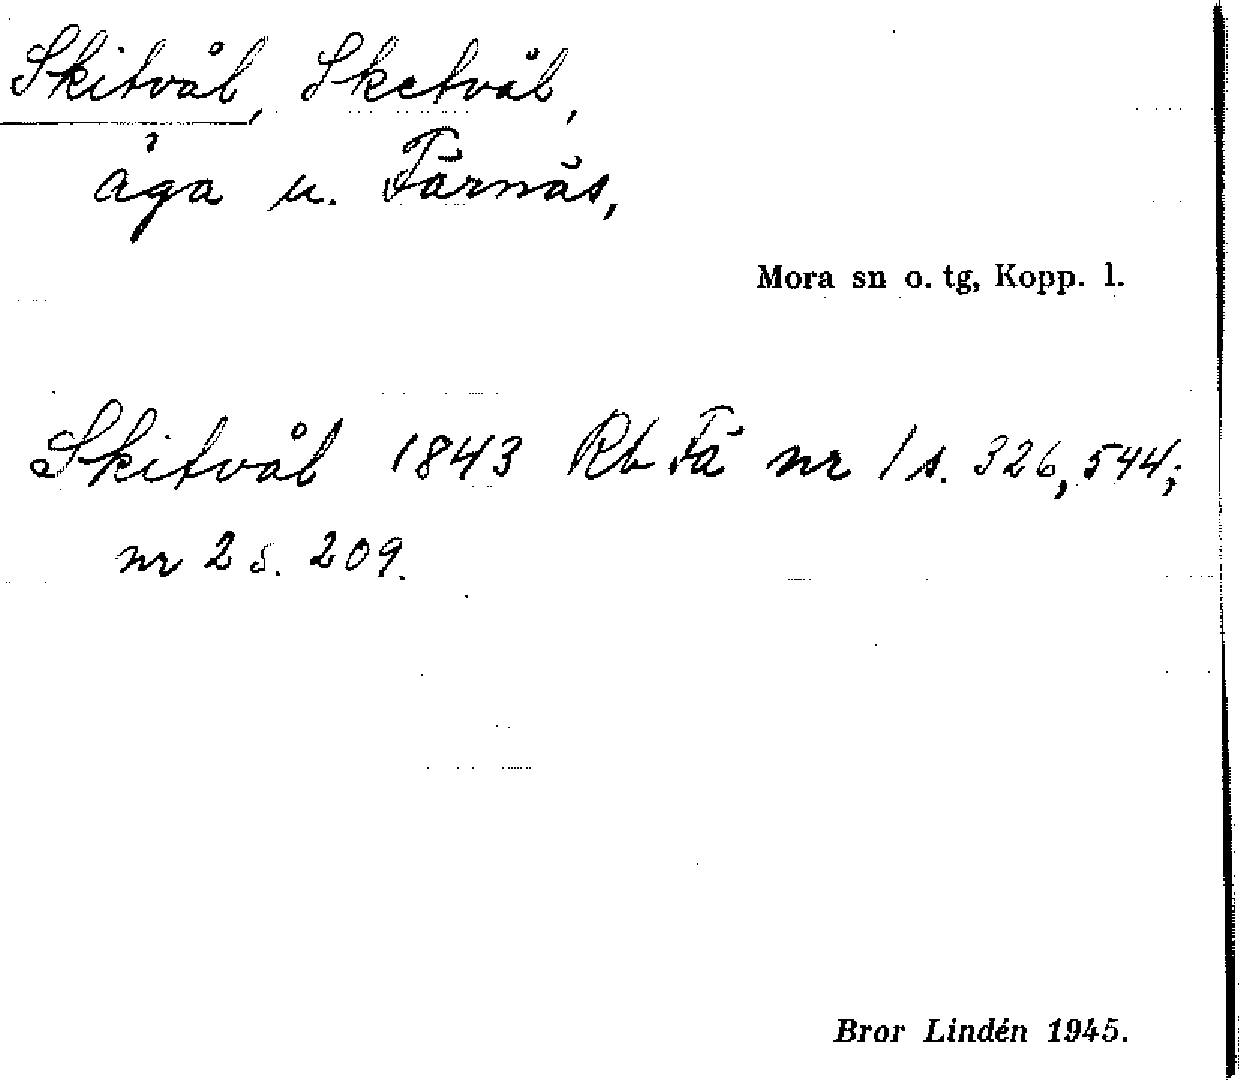 Skitvål, Sketvål,
äga u. Färnäs,
Mora sn o. tg, Kopp. l.
Skitvål 1843 Rb Fä nr 1 s. 326, 544;
nr 2 s. 209.
Bror Lindén 1945.